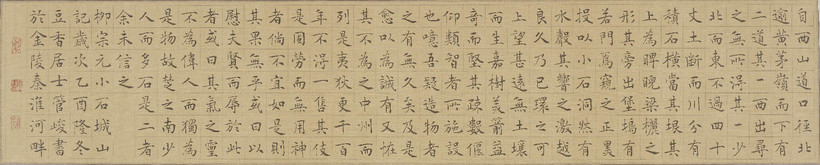 自西山道口徑北
逾黄茅嶺而下有
二道其一西出尋
之無所得其一少
北而東不過四十
丈土斷而川分有
積石橫當其垠其
上為睥睨梁欐之
形其旁出堡塢有
若門焉窺之正黑
投以小石洞然有
水聲其響之激越
良久乃已環之可
上望甚遠無土壤
而生嘉樹美箭益
奇而堅其疏數偃
仰類智者所施設
也噫吾疑造物者
之有無久矣及是
愈以為誠有又恠
其不為之中州而
列是夷狄更千百
年不得一售其伎
是固勞而無用神
者儻不宜如是則
其果無乎或曰以
慰夫賢而辱於此
者或曰其氣之靈
不為偉人而獨為
是物故楚之南少
人而多石是二者
余未信之
柳宗元小石城山
記歲次乙酉隆冬
豆香居士管峻書
於金陵秦淮河畔